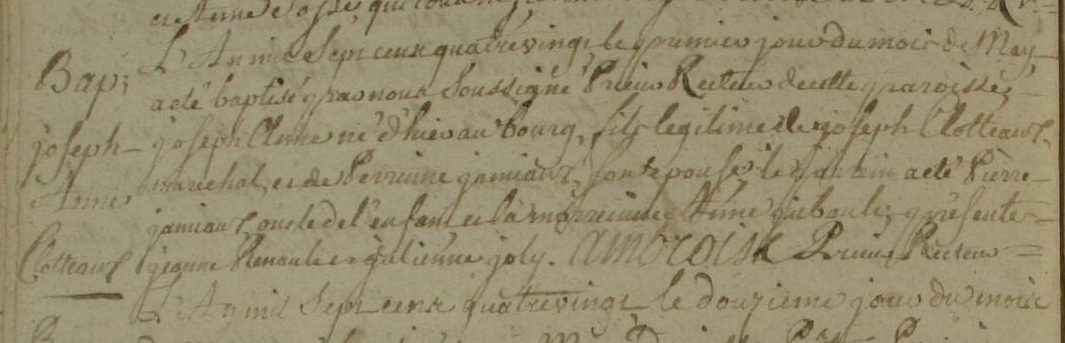 L'An mil Sept cent quatrevingt le premier jour du mois de May
Bap:
a été baptisé par nous Soussigné Prieur Recteur de cette paroisse
joseph Anne né d'hier au bourg, fils legitime de joseph Clotteaux
joseph
marechal, et de Perrinne gamiaux, son epouse le parain a eté Pierre
Anne
gamiaux oncle de l'enfant et la marreinne Anne guibault, presente
Clotteaux
jeanne Renault et julienne joly. Ambroise Prieur Recteur
L'An mil Sept cent quatrevingt le douzieme jour du mois